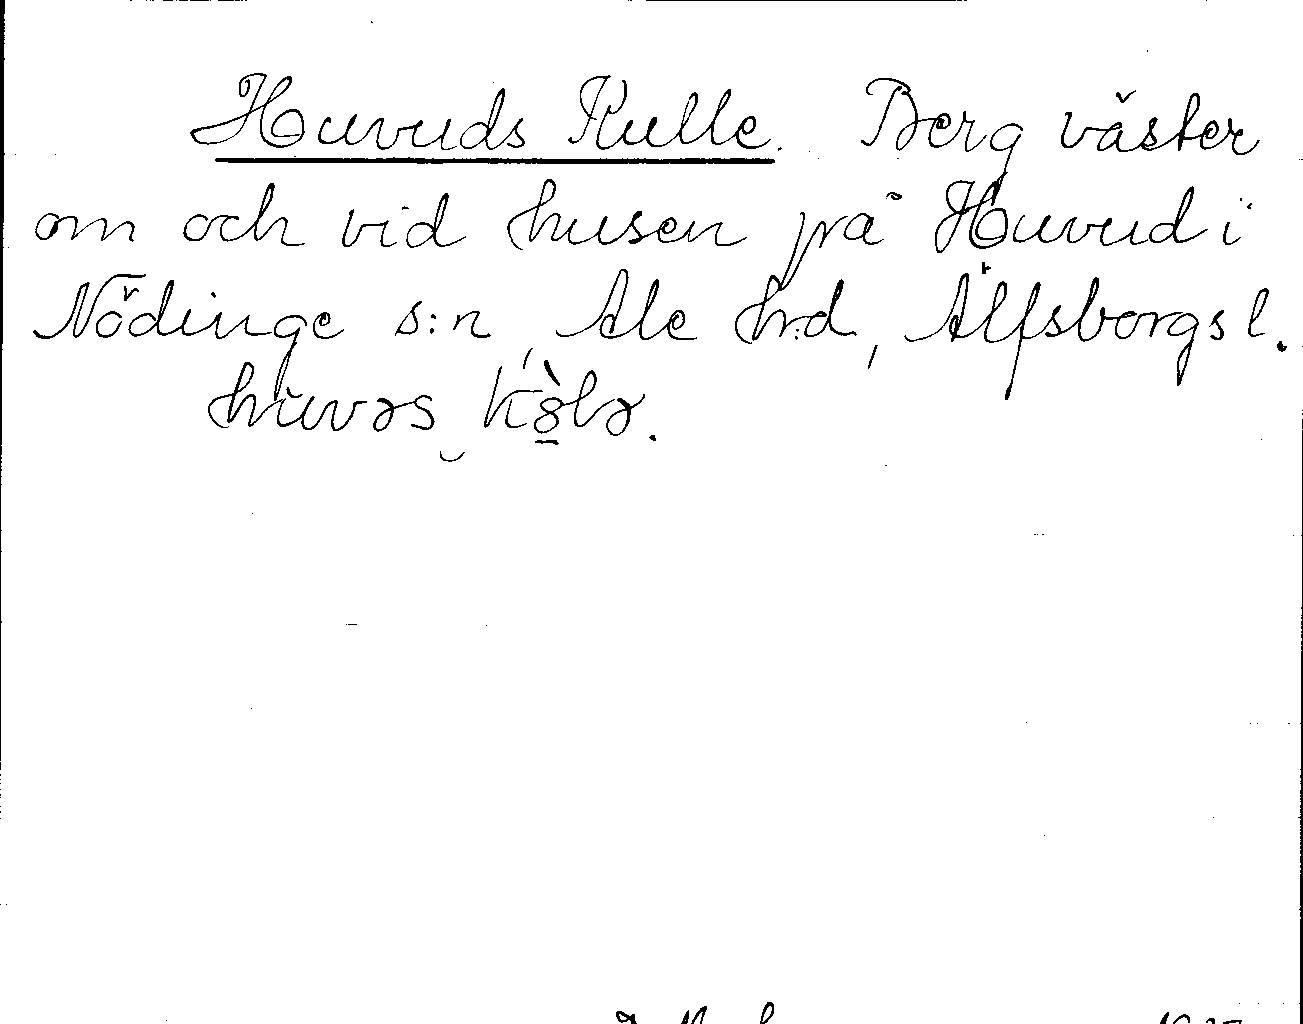 Huvuds Kulle. Berg väster
om och vid husen på Huvud i
Nödinge s:n, Ale h:d, Älfsborgs l.
huvəs